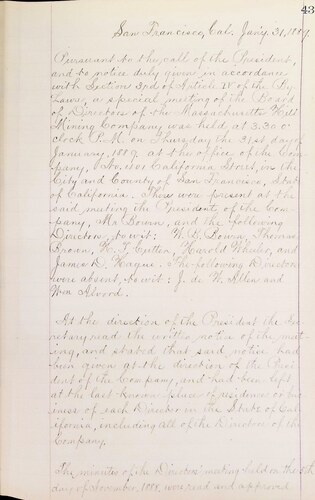 43
San Francisco, Cal. Jan'y 31, 1889.
Pursuant to the call of the President,
and to notice duly given in accordance
with Section 3rd of Article IV of the By
Laws, a special meeting of the Board
of Directors of the Massachusetts Hill
Mining Company was held at 3.30 o'
clock P.M. on Thursday the 31st day of
January, 1889, at the office of the Com
pany, California Street, in the
City and County of San Francisco, State
of California. There were present at the
said meeting the President of the Com
pany, Mr Bourn, and the following
Directors, to wit: W. B. Bourn, Thomas
Brown, Harold Wheeler, and
James D. Hague. The following Directors
were absent, to wit: J. de W. Allen and
Wm Alvord.
At the direction of the President the Sec
retary read the written notice of the meet
ing, and stated that said notice had
been given at the direction of the Presi
dent of the Company, and had been left
at the last known place of residence or bus
iness of each Director in the State of Cal
ifornia, including all of the Directors of the
Company.
The minutes of the Directors' meeting held on the 8th
day of November, 1888, was read and approved